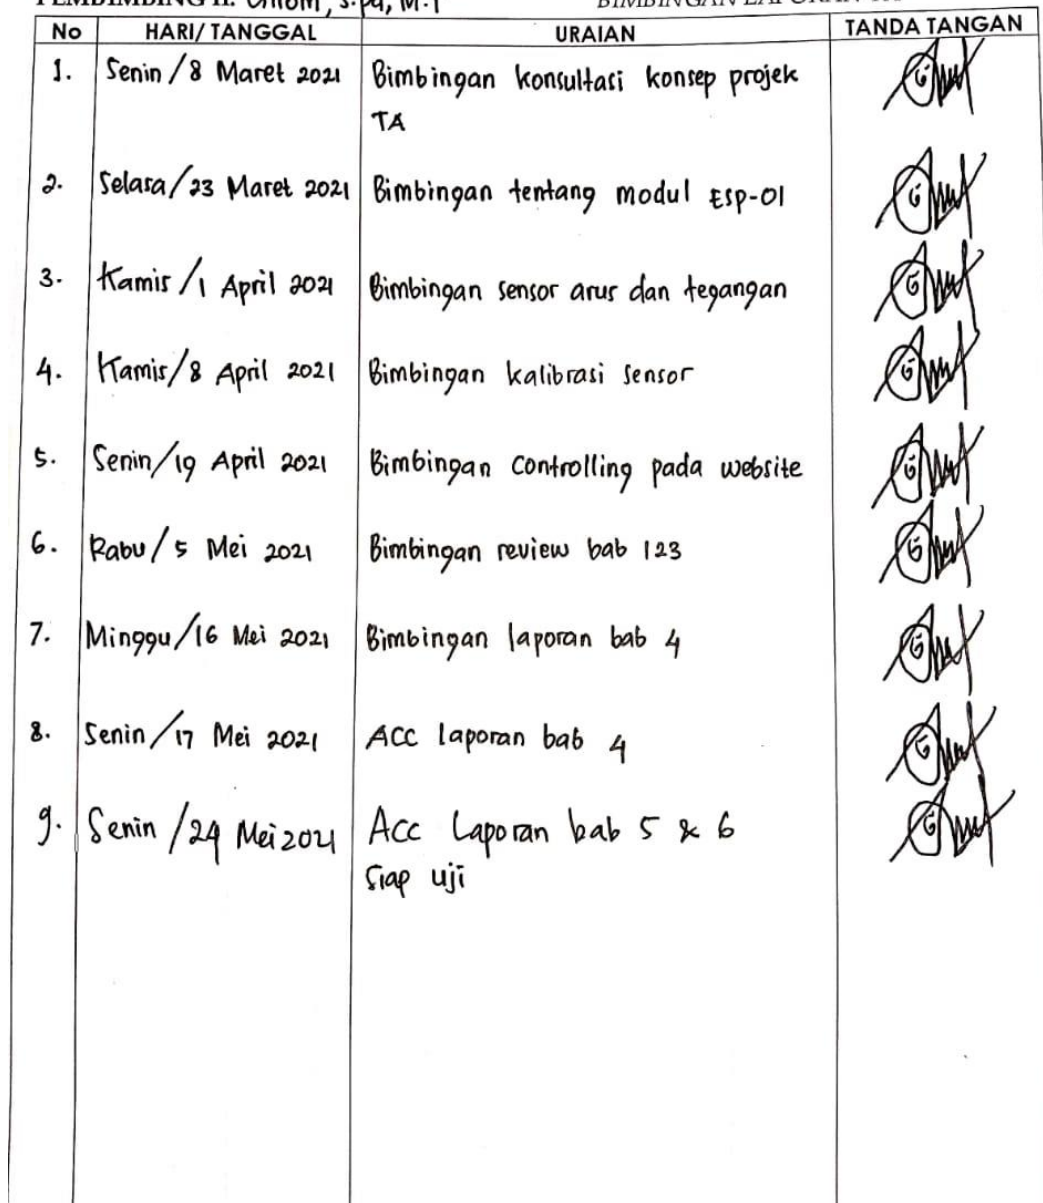 PEMBIMBING II: S.Pd, M.T
BIMBINGAN LAPORAN
No HARI/TANGGAL URAIAN TANDA TANGAN
1. Senin/8 Maret 2021 Bimbingan konsultasi konsep projek
TA
2. Selasa/23 Maret 2021 Bimbingan tentang modul ESP-01
3. Kamis/1 April 2021 Bimbingan sensor arus dan tegangan
4. Kamis/8 April 2021 Bimbingan kalibrasi sensor
5. Senin/19 April 2021 Bimbingan Controlling pada website
6. Rabu/5 Mei 2021 Bimbingan review bab 123
7. Minggu/16 Mei 2021 Bimbingan laporan bab 4
8. Senin/17 Mei 2021 ACC laporan bab 4
9. Senin/24 Mei 2021 Acc Laporan bab 5 & 6
Siap uji